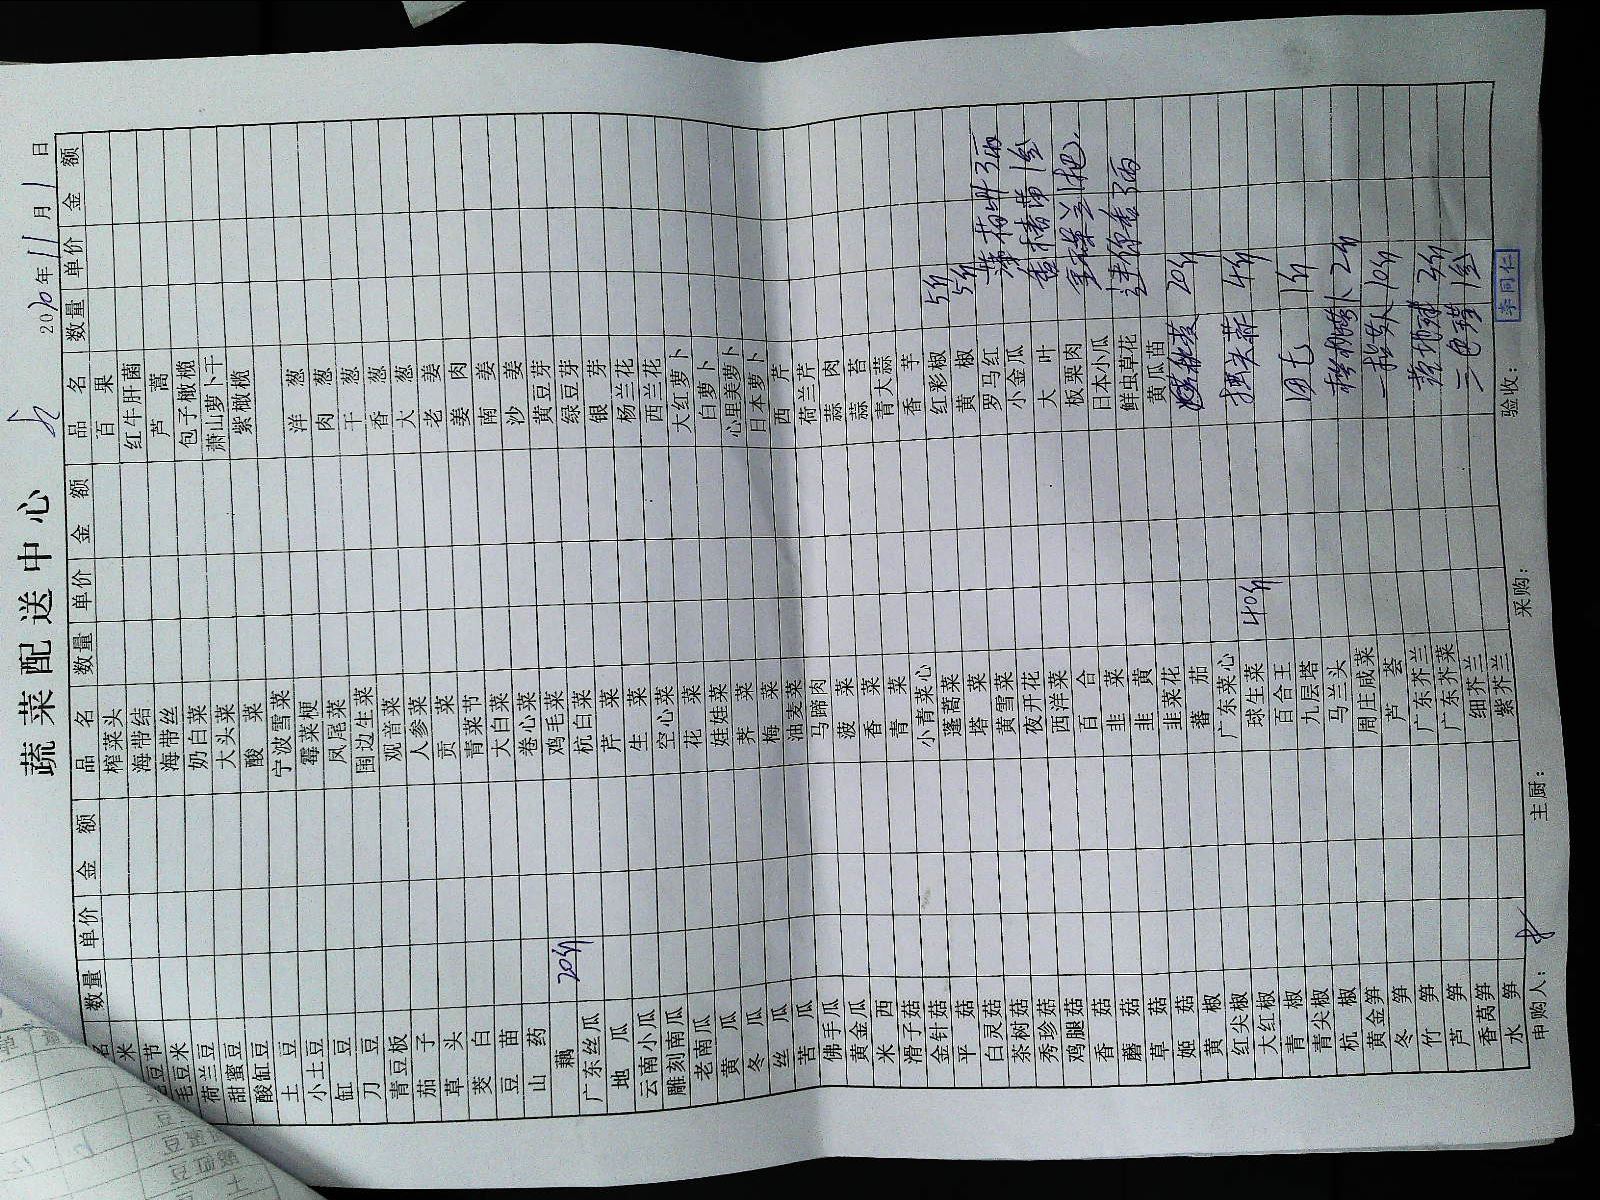 蔬菜配送中心
2020年11月1日
品名 数量 单价 金额 品名 数量 单价 金额 品名 数量 单价 金额
米
毛豆节
毛豆米
荷兰豆
甜蜜豆
酸缸豆
土豆
小土豆
缸豆
刀豆
青豆板
茄子
草头
茭白
豆苗
山药
藕 20份
广东丝瓜
地瓜
云南小瓜
雕刻南瓜
老南瓜
黄瓜
冬瓜
丝瓜
苦瓜
佛手瓜
黄金瓜
米西
滑子菇
金针菇
平菇
白灵菇
茶树菇
秀珍菇
鸡腿菇
香菇
蘑菇
草菇
姬菇
黄椒
红尖椒
大红椒
青椒
青尖椒
杭椒
黄金笋
冬笋
竹笋
芦笋
香莴笋
水笋
榨菜头
海带结
海带丝
奶白菜
大头菜
酸菜
宁波雪菜
霉菜梗
凤尾菜
围边生菜
观音菜
人参菜
贡菜
青菜节
大白菜
卷心菜
鸡毛菜
杭白菜
芹菜
生菜
空心菜
花菜
娃娃菜
荠菜
梅菜
油麦菜
马蹄肉
菠菜
香菜
青菜
小青菜心
蓬蒿菜
塔菜
黄雪菜
夜开花
西洋菜
百合
韭菜
韭黄
韭菜花
番茄
广东菜心
球生菜 40份
百合王
九层塔
马兰头
周庄咸菜
芦荟
广东芥兰
广东芥菜
细芥兰
紫芥兰
百果
红牛肝菌
芦蒿
包子橄榄
萧山萝卜干
紫橄榄
洋葱
肉葱
干葱
香葱
大葱
老姜
姜肉
南姜
沙姜
黄豆芽
绿豆芽
银芽
杨兰花
西兰花
大红萝卜
白萝卜
心里美萝卜
日本萝卜
西芹
荷兰芹
蒜肉
蒜苔
青大蒜
香芋
红彩椒 5份
黄椒 5份
罗马红
小金瓜
大叶
板栗肉
日本小瓜
鲜虫草花
黄瓜苗
20份
4份
1份
2份
10份
3份
三色堇 1盒
申购人：
主厨：
采购：
验收：
李同仁